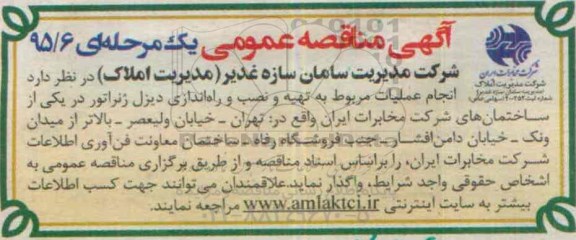 آگهی مناقصه عمومی یک مرحله‌ای ۹۵/۶
شرکت مخابرات ایران
شرکت مدیریت املاک
شرکت مدیریت سامان سازه غدیر (مدیریت املاک) در نظر دارد
انجام عملیات مربوط به تهیه و نصب و راه‌اندازی دیزل ژنراتور در یکی از
ساختمان‌های شرکت مخابرات ایران واقع در: تهران ـ خیابان ولیعصر ـ بالاتر از میدان
ونک ـ خیابان دامن‌افشار ـ جنب فروشگاه رفاه ـ ساختمان معاونت فن‌آوری اطلاعات
شرکت مخابرات ایران، را براساس اسناد مناقصه و از طریق برگزاری مناقصه عمومی به
اشخاص حقوقی واجد شرایط، واگذار نماید. علاقمندان می‌توانند جهت کسب اطلاعات
بیشتر به سایت اینترنتی www.amlaktci.ir مراجعه نمایند.